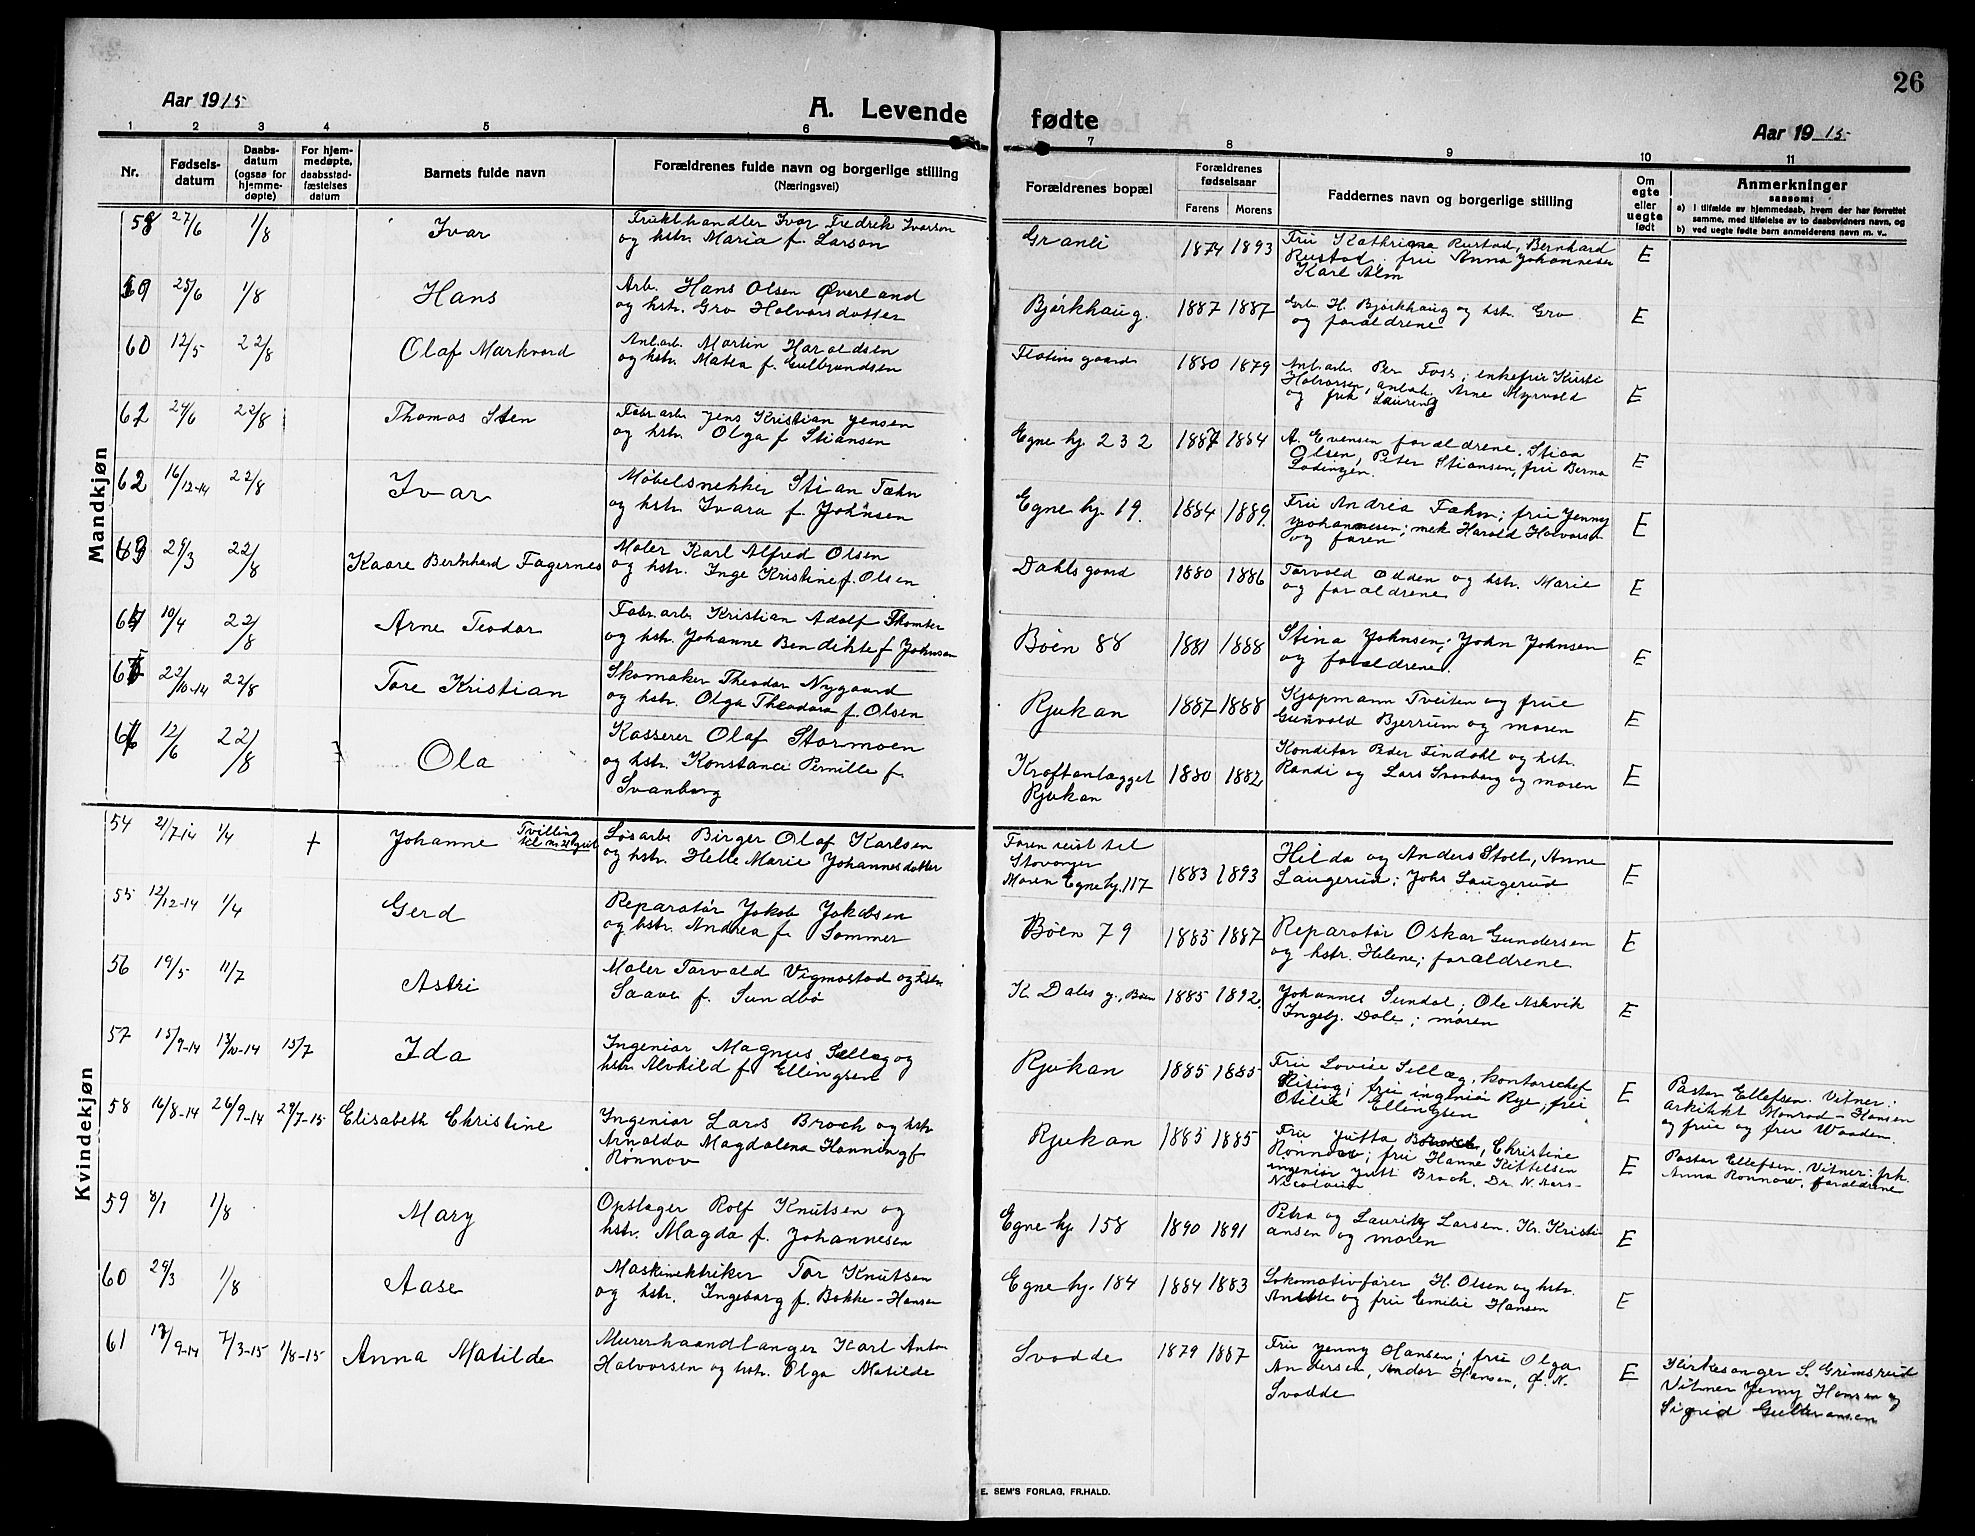 26
Aar 1915
A. Levende fødte
Aar 1915
1 2 3 4 5 6 7 8 9 10 11
Nr.
Fødsels-
datum
Daabs-
datum
(ogsaa for
hjemme-
døpte)
For hjem-
medøpte,
daabsstad-
fæstelses
datum
Barnets fulde navn
Forældrenes fulde navn og borgerlige stilling
(Næringsvei)
Forældrenes bopæl
Forældrenes
fødselsaar
Farens Morens
Faddernes navn og borgerlige stilling
Om
egte
eller
uegte
født
Anmerkninger
saasom:
a) i tilfælde av hjemmedaab, hvem der har forrettet
samme, med tilføielse av to daabsvidners navn, og
b) ved uegte fødte barn anmelderens navn m. v..
Mandkjøn
58 27/6 1/8 Ivar
Frukthandler Ivar Fredrik Ivarson
og hstr. Maria f. Larson
Granli 1874 1893
Fru Kathrina Rustad, Bernhard
Rustad, frü Anna Johannesen
Karl Alm
E
59 25/6 1/8 Hans
Arb. Hans Olsen Øverland
og hstr. Gro Halvorsdatter
Bjørkhaug. 1887 1887
Grb. H. Bjørkhaug og hstr. Gro
og forældrene
E
60 12/5 22/8 Olaf Markvard
Anl.arb. Martin Haraldsen
og hstr. Matea f. Gulbrandsen
Flatins gaard 1880 1879
Anl.arb. Per Foss; enkefrü Kirsti
Halvorsen, anl.arb. Arne Myrvold
og frk
E
61 24/6 22/8 Thomas Sten
Fabr.arb. Jens Kristian Jensen
og hstr. Olga f Stiansen
Egne hj 232 1887 1884
A. Evensen forældrene. Stian
Olsen, Peter Stiansen, frü Berna
Lødingen
E
62 16/12-14 22/8 Ivar
Møbelsnekker Stian Tæhn
og hstr. Ivara f. Johnsen
Egne hj. 19. 1884 1889.
Frü Andrea Tæhn; frü Jenny
Johannesen; mek Harald Halvorsen
og faren
E
63 29/3 22/8 Kaare Bernhard Fagernes
Maler Karl Alfred Olsen
og hstr. Inge Kristine f. Olsen
Dahlsgaard 1880 1886
Torvald Odden og hstr. Marie
og forældrene
E
64 10/4 22/8 Arne Teodor
Fabr.arb. Kristian Adolf Thomter
og hstr. Johanne Bendikte f Johnsen
Bøen 88 1881 1888
Stina Johnsen; John Johnsen
og forældrene.
E
65 22/10-14 22/8 Tore Kristian
Skomaker Theodor Nygaard
og hstr. Olga Theodora f. Olsen
Rjukan 1887 1888
Kjøpmann Tveiten og frue
Gunvald Bjerrum og moren
E
66 12/6 22/8 Ola
Kasserer Olaf Stormoen
og hstr. Konstance Pernille f.
Svanberg
Kraftanlægget
Rjukan
1880 1882
Konditor Peder Findahl og hstr.
Randi og Lars Svanberg og moren
E
Kvindekjøn
54 21/7-14 1/4 + Johanne Tvilling
Løsarb. Birger Olaf Karlsen
og hstr. Helle Marie Johannesdatter
Faren reist til
Stavanger
Moren Egne hj. 117
1883 1893
Hilda og Anders Stolt, Anne
Laugerud; Johs Laugerud
E
55 12/12-14 1/4 Gerd
Reparatør Jakob Jakobsen
og hstr. Andrea f. Sommer
Bøen 79 1885 1887
Reparatør Oskar Gundersen
og hstr. Helene; forældrene
E
56 19/5 11/7 Astri
Maler Torvald Vigmostad og hstr.
Saave f. Sundbø
K. Dales g., Bøen 1885 1892.
Johannes Sundal; Ole Askvik
Ingebj. Dale; moren
E
57 15/9-14 13/10-14 15/7 Ida
Ingeniør Magnus Selleg og
hstr. Alvhild f Ellingsen
Rjukan 1885 1885
Frü Lovise Sellæg, kontorchef
Riising; frü ingeniør Rye, frü
Otilie Ellengsen
E
Pastor Ellefsen. Vitner:
arkitekt Monrad-Hansen
og frue og frü Waaden
58 16/8-14 26/9-14 29/7-15 Elisabeth Christine
Ingeniør Lars Broch og hstr
Arnolda Magdalena Hanning f
Rønnov
Rjukan 1885 1885
Frü Jutta Broch, Christine
Rønnov; frü Hanne Kittelsen
ingeniør Jutti Broch, Dr. N. Aars-
Nicolaisen
E
Pastor Ellefsen. Vitner: frk.
Anna Rønnow, forældrene
59 8/1 1/8 Mary
Opslager Rolf Knutsen og
hstr. Magda f. Johannesen
Egne hj 158 1890 1891
Petra og Lauritz Larsen. Kr. Kristi-
ansen og moren
E
60 29/3 1/8 Aase
Maskinektriker Tor Knutsen
og hstr. Ingeborg f. Bakke-Hansen
Egne hj. 184 1884 1883
Lokomotivfører H. Olsen og hstr.
Anette og frü Emilie Hansen
E
61 13/9-14 7/3-15 1/8-15 Anna Matilde
Murerhaandlanger Karl Anton
Halvorsen og hstr. Olga Matilde
Svadde 1879 1887
Frü Jenny Hansen; frü Olga
Andersen, Andor Hansen, Ø. N.
Svadde
E
Kirkesanger S. Grimsrud
Vitner Jenny Hansen og
Sigrid Gulbransen
E. SEM'S FORLAG, FR.HALD.